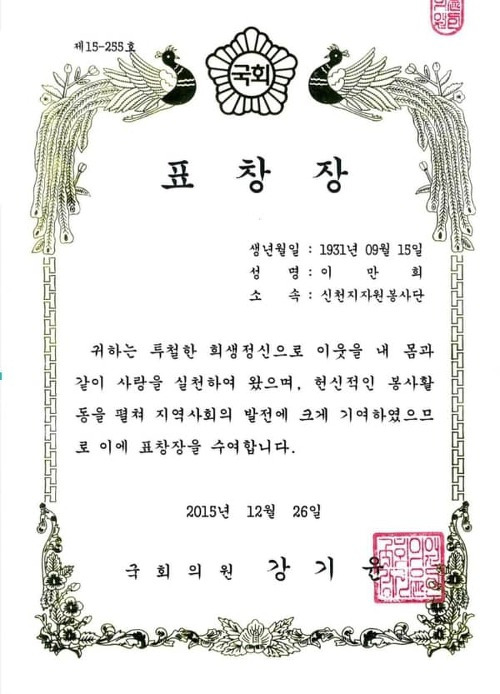 제15-255호
국회
표창장
생년월일 : 1931년 09월 15일
성 명 : 이 만 희
소 속 : 신천지자원봉사단
귀하는 투철한 희생정신으로 이웃을 내 몸과
같이 사랑을 실천하여 왔으며, 헌신적인 봉사활
동을 펼쳐 지역사회의 발전에 크게 기여하였으므
로 이에 표창장을 수여합니다.
2015년 12월 26일
국회의원 강기윤